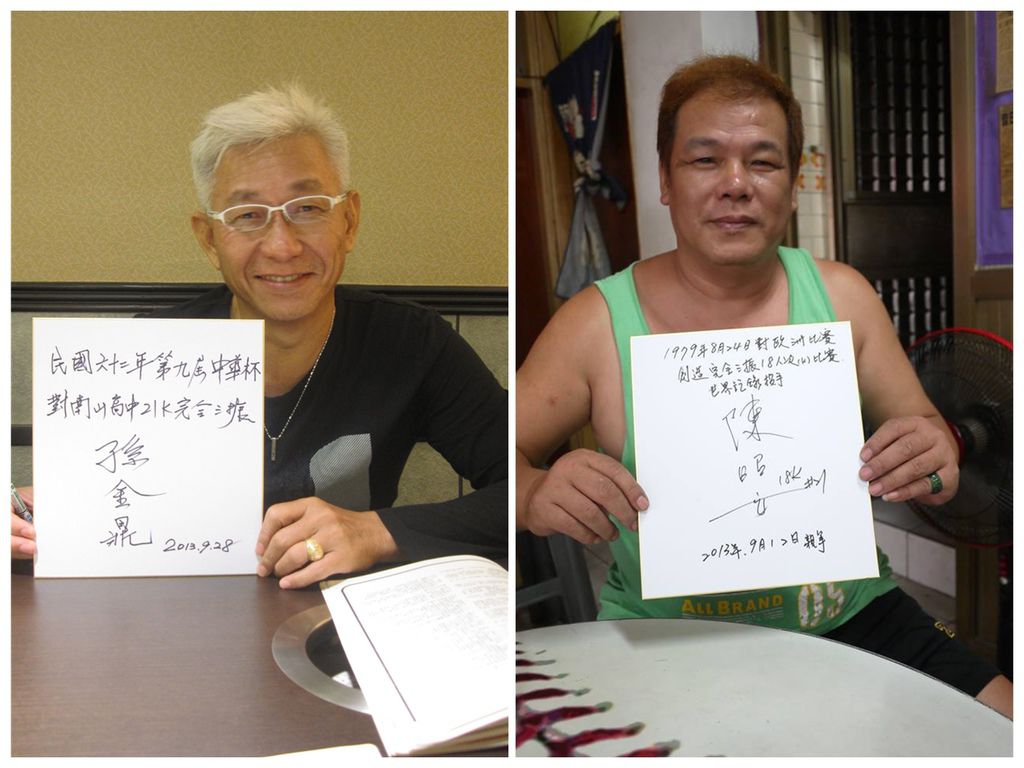 民國六十二年第九屆中華杯
對南山高中21K完全三振
孫
金
鼎
2013.9.28
1979年8月24日對歐洲比賽
創造完全三振18人次(1)比賽.
世界記錄投手
陳
昭
18K #21
2013年.9月12日 投手
ALL BRAND
05